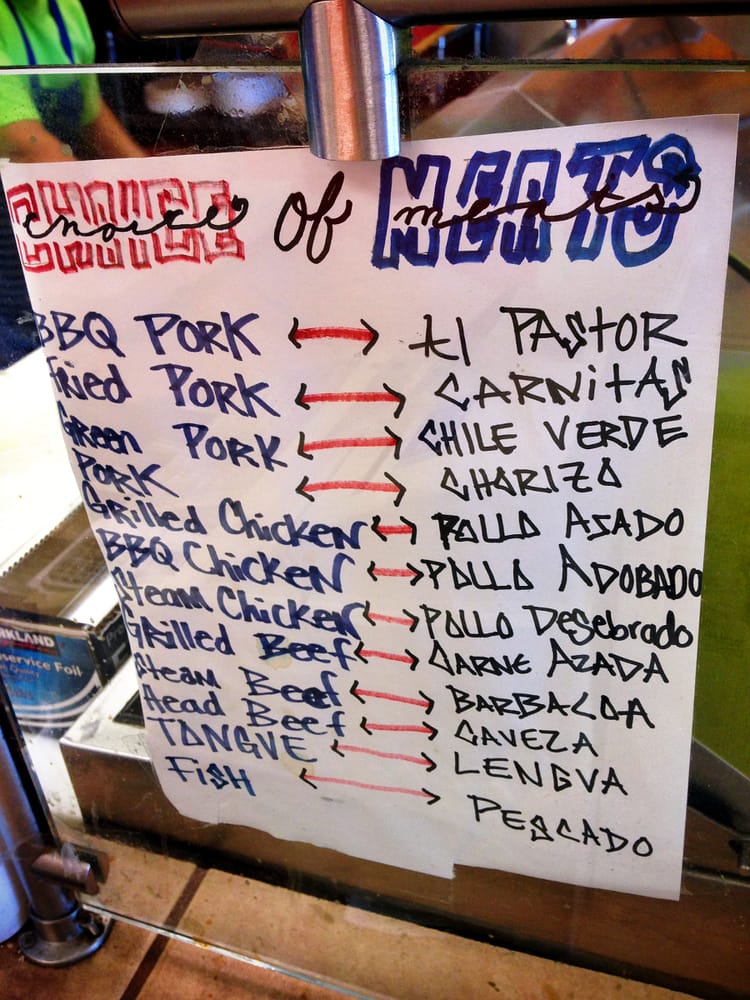 CHOICE of MEATS
choice meats
BBQ PORK ↔ El PAStOR
Fried PORK ↔ CARNitAS
Green PORK ↔ CHILE VERDE
PORK ↔ CHORIZO
Grilled Chicken ↔ POLLO ASADO
BBQ Chicken ↔ POLLO ADOBADO
Steam Chicken ↔ POLLO Desebrado
Grilled Beef ↔ CARNE AZADA
Steam Beef ↔ BARBACOA
Head Beef ↔ CAVEZA
TONGUE ↔ LENGUA
FiSH ↔ PESCADO
RKLAND
service Foil